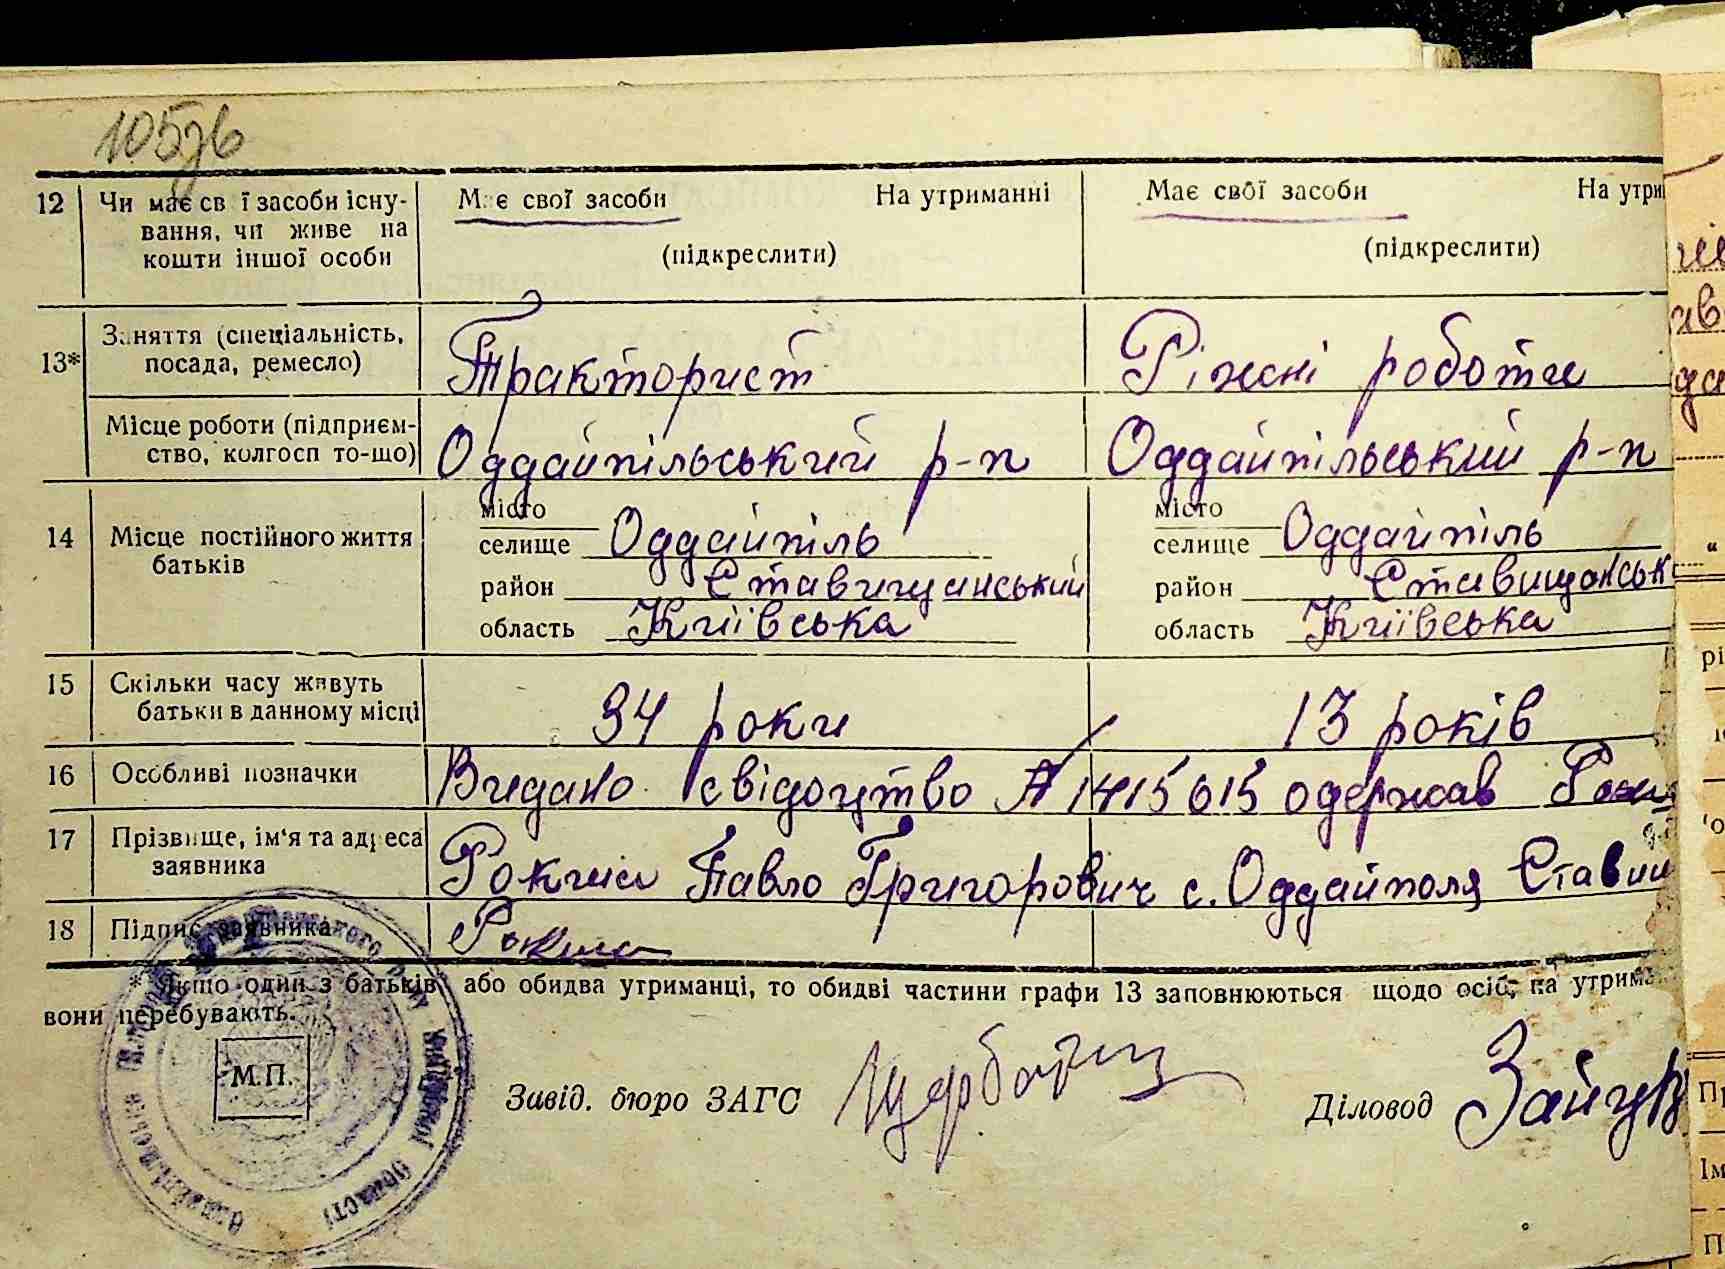 105зв
12 Чи має св ї засоби існу- М є свої засоби На утриманні Має свої засоби На утри
вання, чи живе на
кошти іншої особи (підкреслити) (підкреслити)
13* Заняття (спеціальність, Тракторист Ріжні роботи
посада, ремесло)
Місце роботи (підприєм- Оддайпільський р-п Оддайпільський р-п
ство, колгосп то-що)
місто місто
14 Місце постійного життя селище Оддайпіль селище Оддайпіль
батьків район Ставищанський район Ставищанськ
область Київська область Київська
15 Скільки часу живуть 34 роки 13 років
батьки в данному місці
16 Особливі позначки Видано свідоцтво А 1415615 одержав
17 Прізвище, ім'я та адреса Павло Григорович с. Оддайполя Стави
заявника
18 Підпис заявника
* Якщо один з батьків або обидва утриманці, то обидві частини графи 13 заповнюються щодо осіб, на утрима
вони перебувають.
М.П.
Завід. бюро ЗАГС Діловод
області